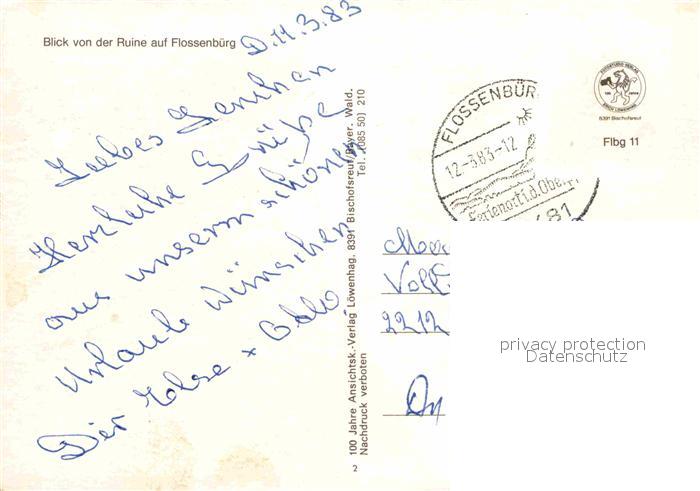 Blick von der Ruine auf Flossenbürg
D. 11.3.83
Liebes
Herzliche Grüße
aus unserm schönen
Urlaub Wünschen
Dir Else + Otto
100 Jahre Ansichtsk.-Verlag Löwenhag, 8391 Bischofsreut/Bayer. Wald.
Tel. (085 50) 210
Nachdruck verboten
2
FLOSSENBÜR
12-3.83-12
Ferienort i.d. Oberpf
481
8391 Bischofsreut
Flbg 11
2212
privacy protection
Datenschutz